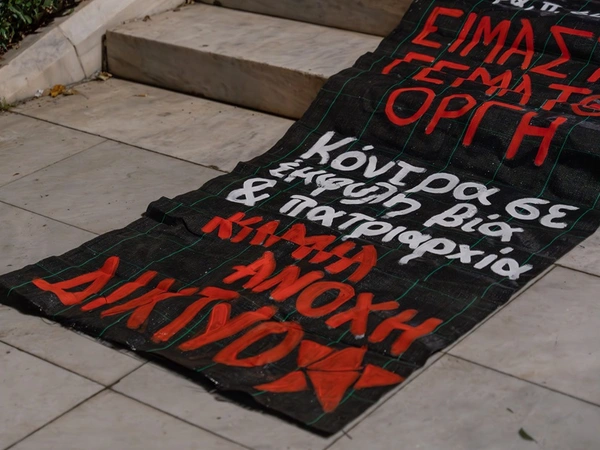 ΕΙΜΑΣΤ
ΓΕΜΑΤΟ
ΟΡΓΗ
Κόντρα σε
έμφυλη βία
& πατριαρχία
ΚΑΜΙΑ
ΑΝΟΧΗ
ΔΙΚΤΥΟ